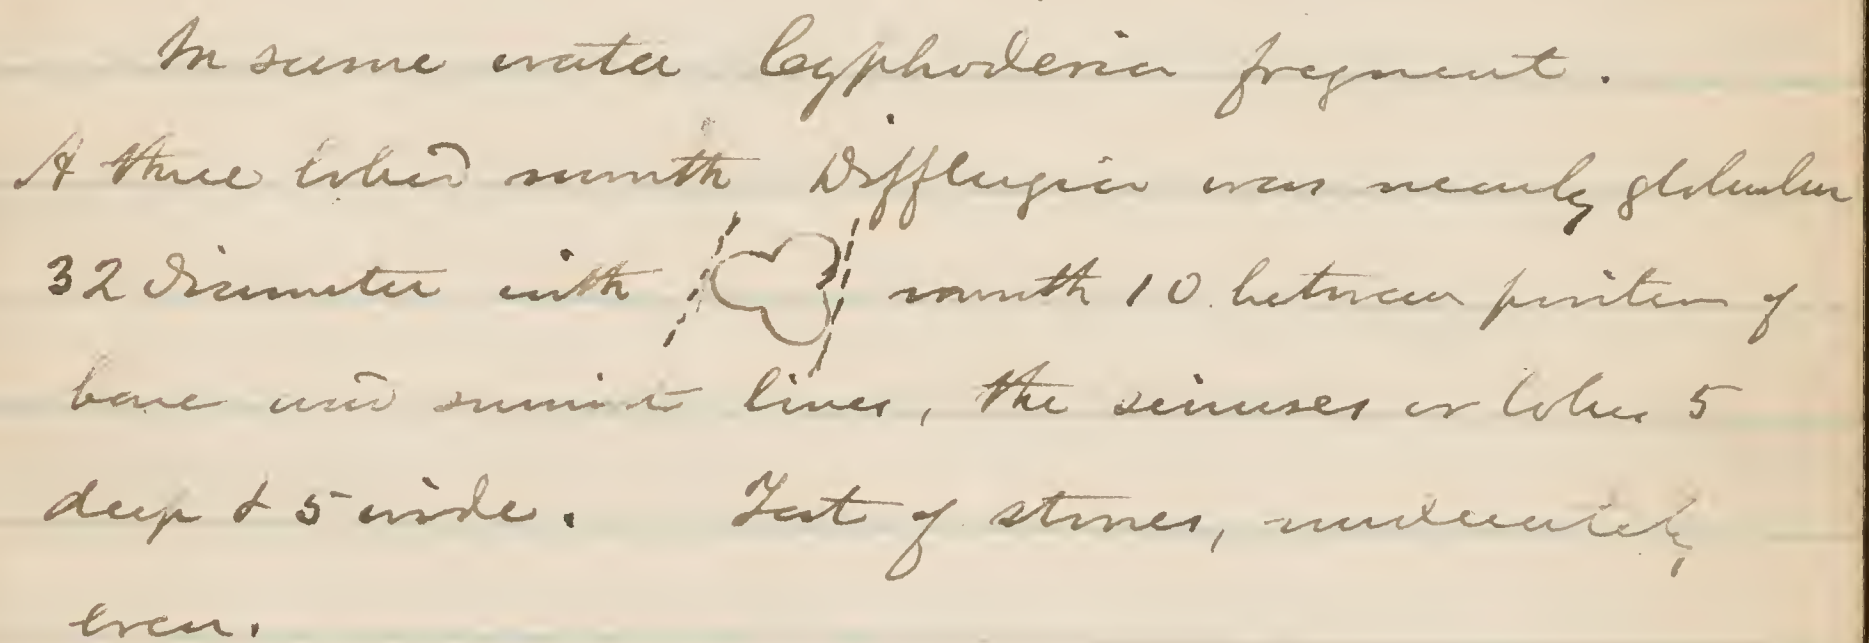 In same water Cyphoderia fragment.
A three lobed mouth Difflugia was nearly globular
32 diameter with mouth 10 between position of
base and summit lines, the sinuses or lobes 5
deep & 5 wide. Test of stones, moderately
even.